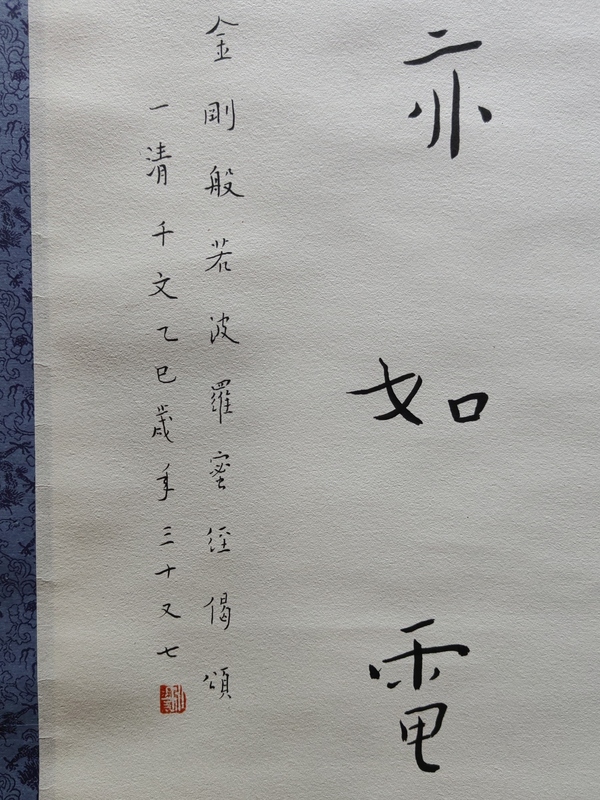 亦如電
金剛般若波羅蜜經偈頌
一清千文乙巳歲年三十又七